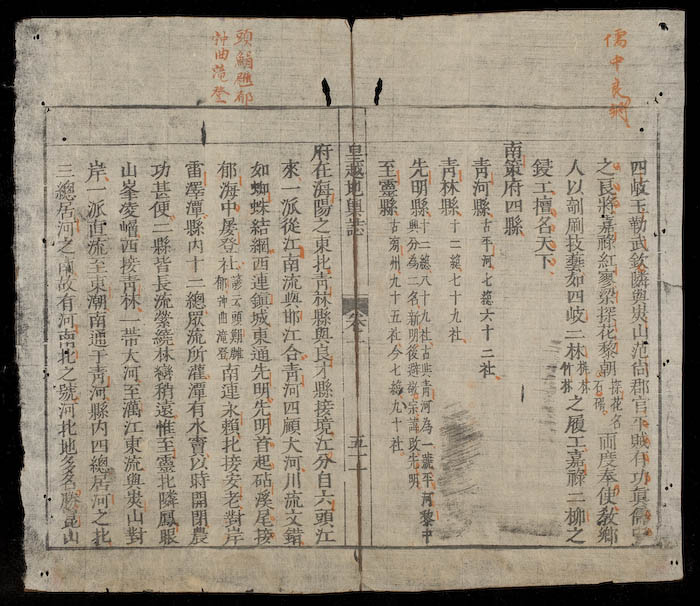 儒中良將
四岐玉勒武欽隣與夷山范尙郡官平賊有功眞儒中
之良將嘉祿紅蓼梁探花黎朝探花名石 兩度奉使教鄉
人以剞劂技藝如四岐二林 林竹林之履工嘉祿二柳之
鋟工擅名天下
南策府四縣
青河縣古平河七總六十二社
青林縣十二總七十九社
先明縣十二總八十九社古與青河為一號平河黎中
興分為二名新明後避敬宗諱改先明
至靈縣古 州九十五社今七總九十社
皇越地輿誌
卷之
五十
頭 郁
曲滝登
府在海陽之東北青林縣與良才縣接境江分自六頭江
來一派從江南流與邯江合青河四顧大河川流文錯
如蜘蛛結網西連鎮城東通先明先明首起砧溪尾接
郁海中屡登社諺云頭 郁 曲滝登南運永賴北接安老對岸
雷澤潭縣內十二總眾流所灌潭有水竇以時開閉農
功甚便二縣皆長流縈繞林巒稍遠惟至靈北隣鳳眼
山峯凌嶒西接青林一帶大河至萬江東流與夷山對
岸一派直流至東潮南通于青河縣內四總居河之北
三總居河之南故有河南北之號河北地多名勝崑山